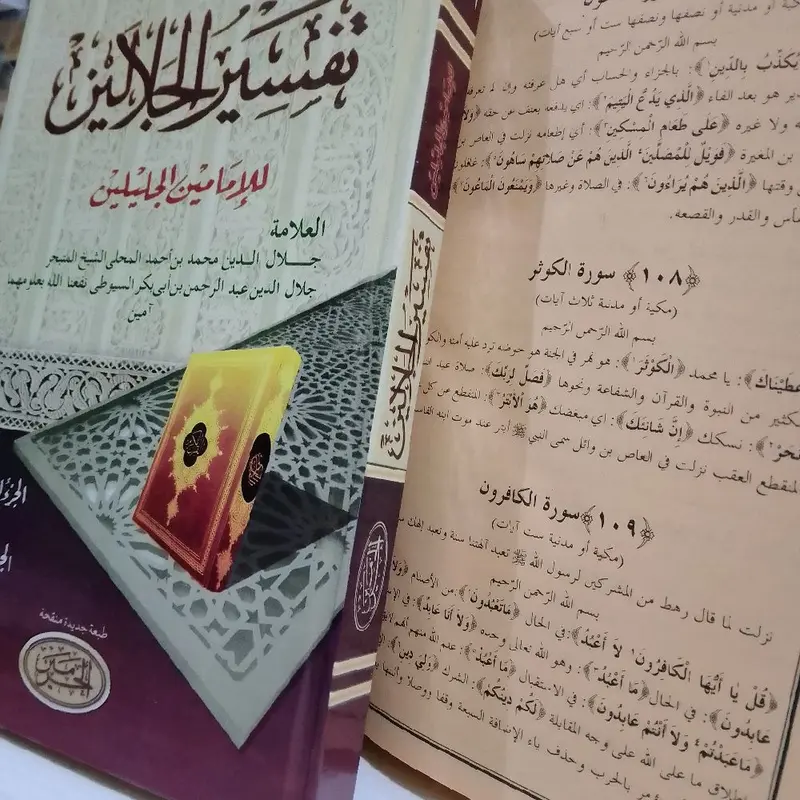 تفسير الجلالين
للإمامين الجليلين
العلامة
جلال الدين محمد بن أحمد المحلي الشيخ المتبحر
جلال الدين عبد الرحمن بن أبي بكر السيوطي نفعنا الله بعلومهما
آمين
طبعة جديدة منقحة
الحرمين
تفسير الجلالين
مكية أو مدنية أو نصفها ونصفها ست أو سبع آيات)
بسم الله الرّحمن الرّحيم
يُكَذِّبُ بِالدِّينِ ١﴾: بالجزاء والحساب أي هل عرفته وإن لم تعرفه
بعد الفاء ﴿الَّذِي يَدُعُّ الْيَتِيمَ ٢﴾: أي يدفعه بعنف عن حقه ﴿وَلَا
ولا غيره ﴿عَلَى طَعَامِ الْمِسْكِينِ ٣﴾: أي إطعامه نزلت في العاص بن
بن المغيرة ﴿فَوَيْلٌ لِلْمُصَلِّينَ ٤ الَّذِينَ هُمْ عَنْ صَلَاتِهِمْ سَاهُونَ ٥﴾: غافلون
وقتها ﴿الَّذِينَ هُمْ يُرَاءُونَ ٦﴾: في الصلاة وغيرها ﴿وَيَمْنَعُونَ الْمَاعُونَ ٧﴾
والقدر والقصعة.
﴿١٠٨﴾ سورة الكوثر
(مكية أو مدنية ثلاث آيات)
بسم الله الرّحمن الرّحيم
﴾: يا محمد ﴿الْكَوْثَرَ ١﴾: هو نهر في الجنة هو حوضه ترد عليه أمته
من النبوة والقرآن والشفاعة ونحوها ﴿فَصَلِّ لِرَبِّكَ﴾: صلاة عيد
﴾: نسكك ﴿إِنَّ شَانِئَكَ﴾: أي مبغضك ﴿هُوَ الْأَبْتَرُ ٣﴾: المنقطع عن كل
المنقطع العقب نزلت في العاص بن وائل سمى النبي ﷺ أبتر عند موت ابنه
﴿١٠٩﴾ سورة الكافرون
(مكية أو مدنية ست آيات)
بسم الله الرّحمن الرّحيم
نزلت لما قال رهط من المشركين لرسول الله ﷺ تعبد آلهتنا سنة ونعبد إلهك
﴿قُلْ يَا أَيُّهَا الْكَافِرُونَ ١ لَا أَعْبُدُ﴾: في الحال ﴿مَا تَعْبُدُونَ ٢﴾: من الأصنام ﴿وَلَا
عَابِدُونَ﴾: في الحال ﴿مَا أَعْبُدُ ٣﴾: وهو الله تعالى وحده ﴿وَلَا أَنَا عَابِدٌ﴾: في
مَا عَبَدْتُمْ ٤ وَلَا أَنْتُمْ عَابِدُونَ﴾: في الاستقبال ﴿مَا أَعْبُدُ ٥﴾: علم الله منهم أنهم
ما على الله على وجه المقابلة ﴿لَكُمْ دِينُكُمْ﴾: الشرك ﴿وَلِيَ دِينِ ٦﴾:
بالحرب وحذف ياء الإضافة السبعة وقفا ووصلا